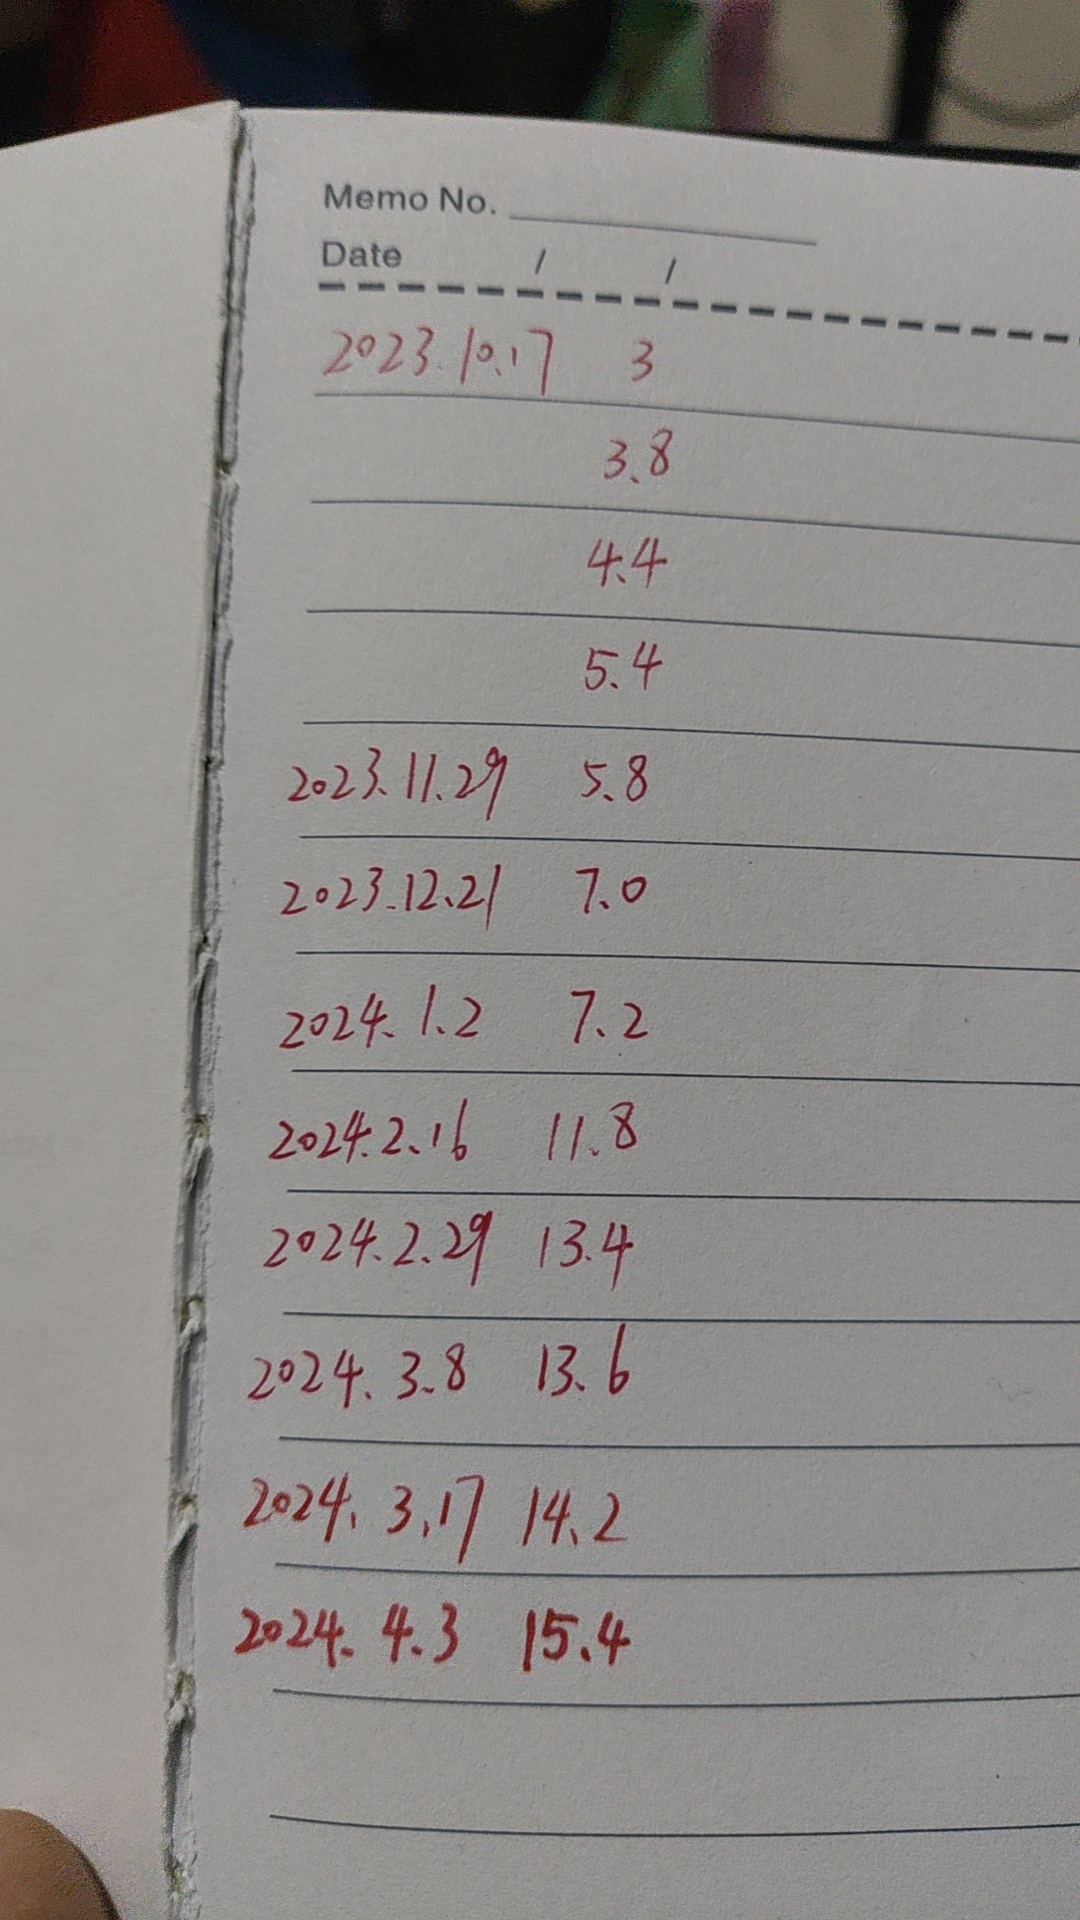 Memo No.
Date / /
2023.10.17 3
3.8
4.4
5.4
2023.11.29 5.8
2023.12.21 7.0
2024.1.2 7.2
2024.2.16 11.8
2024.2.29 13.4
2024.3.8 13.6
2024.3.17 14.2
2024.4.3 15.4